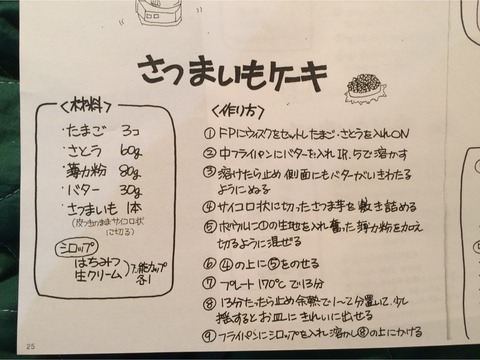 さつまいもケーキ
<材料>
・たまご 3コ
・さとう 60g
・薄力粉 80g
・バター 30g
・さつまいも 1本
(皮つきのままサイコロ状
に切る)
シロップ
はちみつ
生クリーム
万能カップ
各1
<作り方>
①FPにウィスクをセットしたまご・さとうを入れON
②中フライパンにバターを入れ IR.5で溶かす
③溶けたら止め 側面にもバターがいきわたる
ようにぬる
④サイコロ状に切ったさつま芋を敷き詰める
⑤ボウルに①の生地を入れ奮った薄力粉を加え
切るように混ぜる
⑥④の上に⑤をのせる
⑦プレート170℃で13分
⑧13分たったら止め余熱で1〜2分置いて、少し
揺するとお皿にきれいに出せる
⑨フライパンにシロップを入れ溶かし⑧の上にかける
25